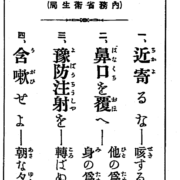 (内務省衛生局)
一、近寄るな―咳する
二、鼻口を覆へ―他の為
身の為
三、豫防注射を―轉ばぬ
四、含嗽せよ―朝な